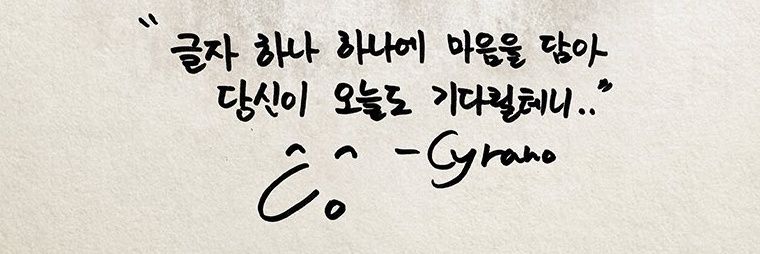 “글자 하나 하나에 마음을 담아
당신이 오늘도 기다릴테니..”
-Cyrano